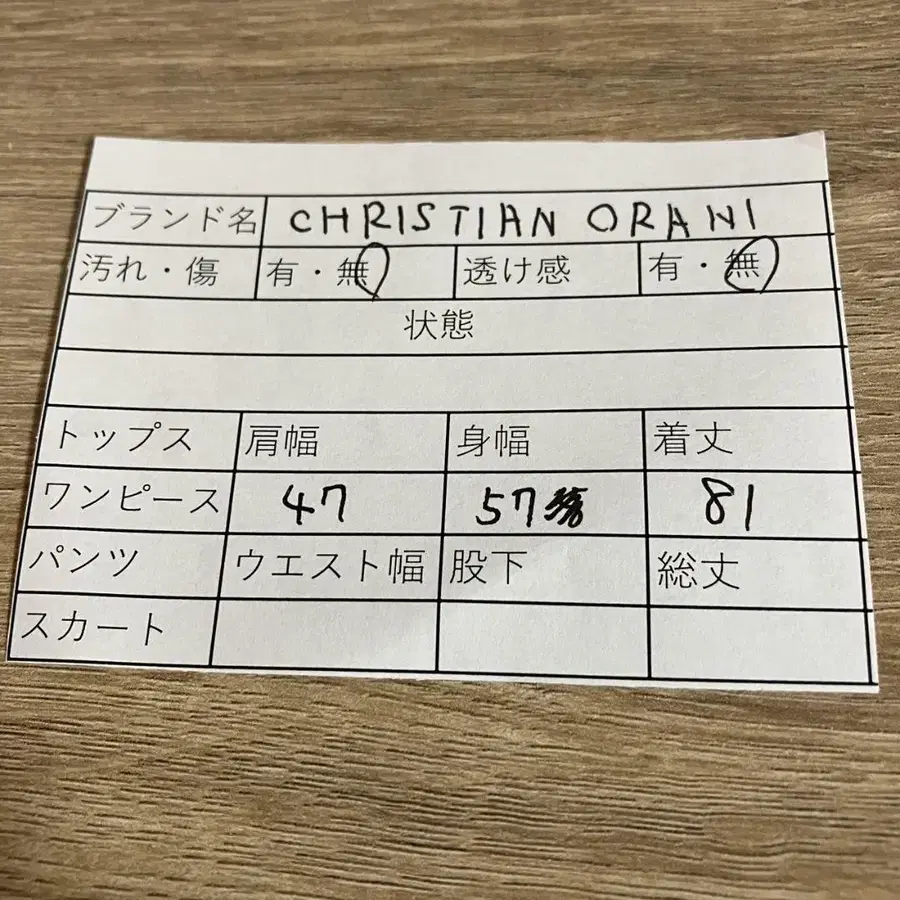 ブランド名 CHRISTIAN ORANI
汚れ・傷 有・無 透け感 有・無
状態
トップス 肩幅 身幅 着丈
ワンピース 47 57 81
パンツ ウエスト幅 股下 総丈
スカート